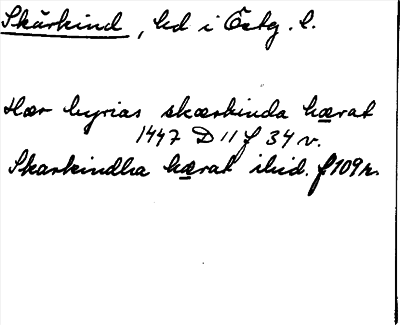 Skärkind, hd i Östg. l.
Hær byrias skærkinda hærat
1447 D 11 f 34 v.
Skærkindha hærat ibid. f 109 r.